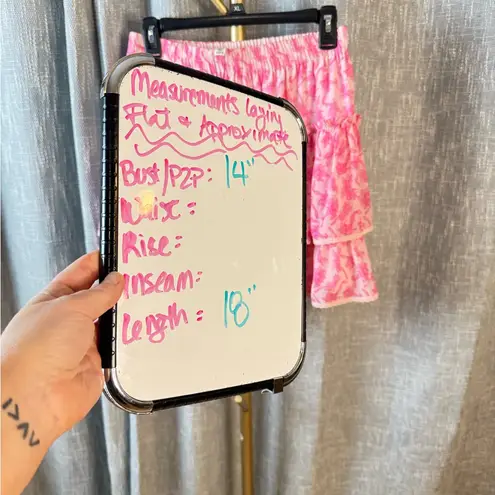 XL
Measurements laying
Flat & Approximate
Bust/P2P: 14"
Waist:
Rise:
Inseam:
Length: 18"
I>ΛV